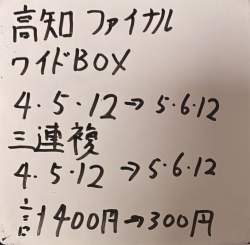 高知 ファイナル
ワイドBOX
4・5・12→5・6・12
三連複
4・5・12→5・6・12
計1400円→300円